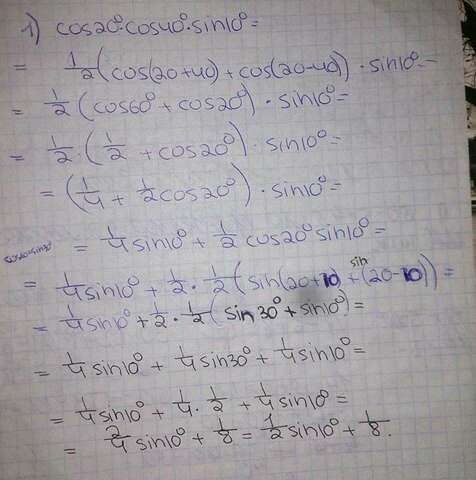 1) cos20°·cos40°·sin10°=
= 1/2 (cos(20+40) + cos(20-40)) · sin10°=
= 1/2 (cos60° + cos20°) · sin10°=
= 1/2 · (1/2 + cos20°) · sin10°=
= (1/4 + 1/2 cos20°) · sin10°=
= 1/4 sin10° + 1/2 cos20° sin10°=
= 1/4 sin10° + 1/2 · 1/2 (sin(20+10) + sin(20-10)) =
= 1/4 sin10 + 1/2 · 1/2 (sin30° + sin10°)=
= 1/4 sin10° + 1/4 sin30° + 1/4 sin10°=
= 1/4 sin10° + 1/4 · 1/2 + 1/4 sin10=
= 2/4 sin10° + 1/8 = 1/2 sin10° + 1/8.